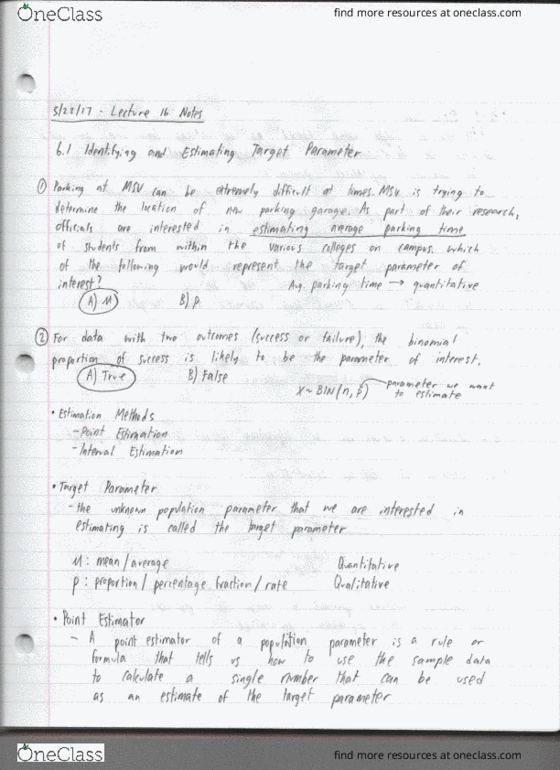 OneClass
find more resources at oneclass.com
5/22/17 - Lecture 16 Notes
6.1 Identifying and Estimating Target Parameter
① Parking at MSU can be extremely difficult at times. MSU is trying to
determine the location of new parking garage. As part of their research,
officials are interested in estimating average parking time
of students from within the various colleges on campus. Which
of the following would represent the target parameter of
interest?
Avg. parking time → quantitative
A) M B) p
② For data with two outcomes (success or failure), the binomial
proportion of success is likely to be the parameter of interest.
A) True B) False
X ~ BIN(n, p) parameter we want
to estimate
• Estimation Methods
- Point Estimation
- Interval Estimation
• Target Parameter
- the unknown population parameter that we are interested in
estimating is called the target parameter
M : mean / average Quantitative
p : proportion / percentage fraction / rate Qualitative
• Point Estimator
- A point estimator of a population parameter is a rule or
formula that tells us how to use the sample data
to calculate a single number that can be used
as an estimate of the target parameter
OneClass
find more resources at oneclass.com